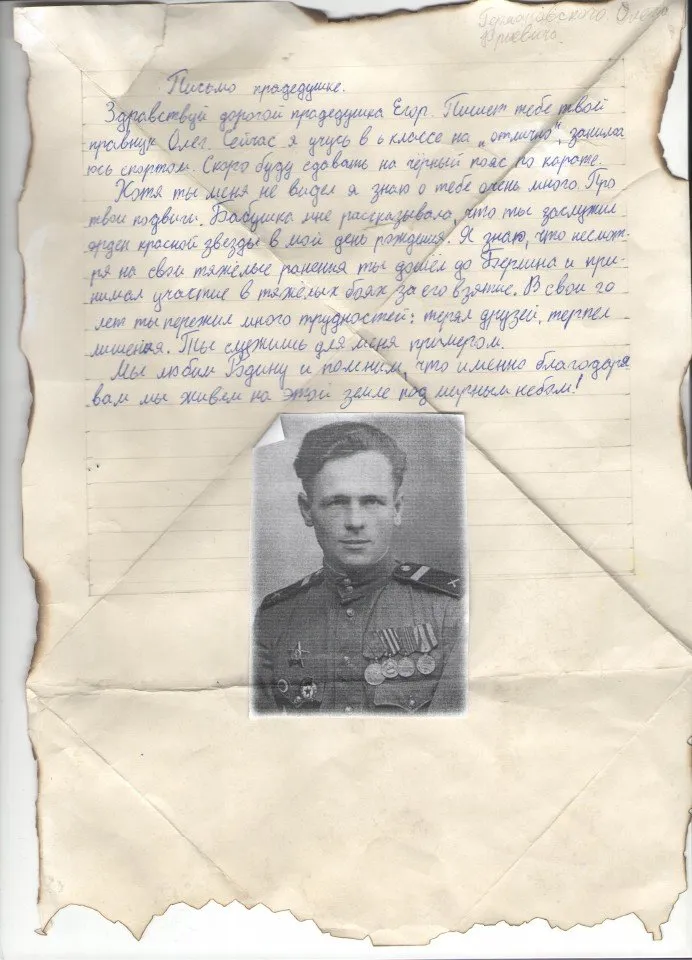 Олега
Юрьевича.
Письмо прадедушке.
Здравствуй дорогой прадедушка Егор. Пишет тебе твой
правнук Олег. Сейчас я учусь в 6 классе на „отлично", занима
юсь спортом. Скоро буду сдавать на чёрный пояс по карате.
Хотя ты меня не видел я знаю о тебе очень много. Про
твои подвиги. Бабушка мне рассказывала, что ты заслужил
орден красной звезды в мой день рождения. Я знаю, что несмот-
ря на свои тяжёлые ранения ты дошёл до Берлина и при-
нимал участие в тяжёлых боях за его взятие. В свои 20
лет ты пережил много трудностей: терял друзей, терпел
лишения. Ты служишь для меня примером.
Мы любим Родину и помним, что именно благодаря
вам мы живем на этой земле под мирным небом!